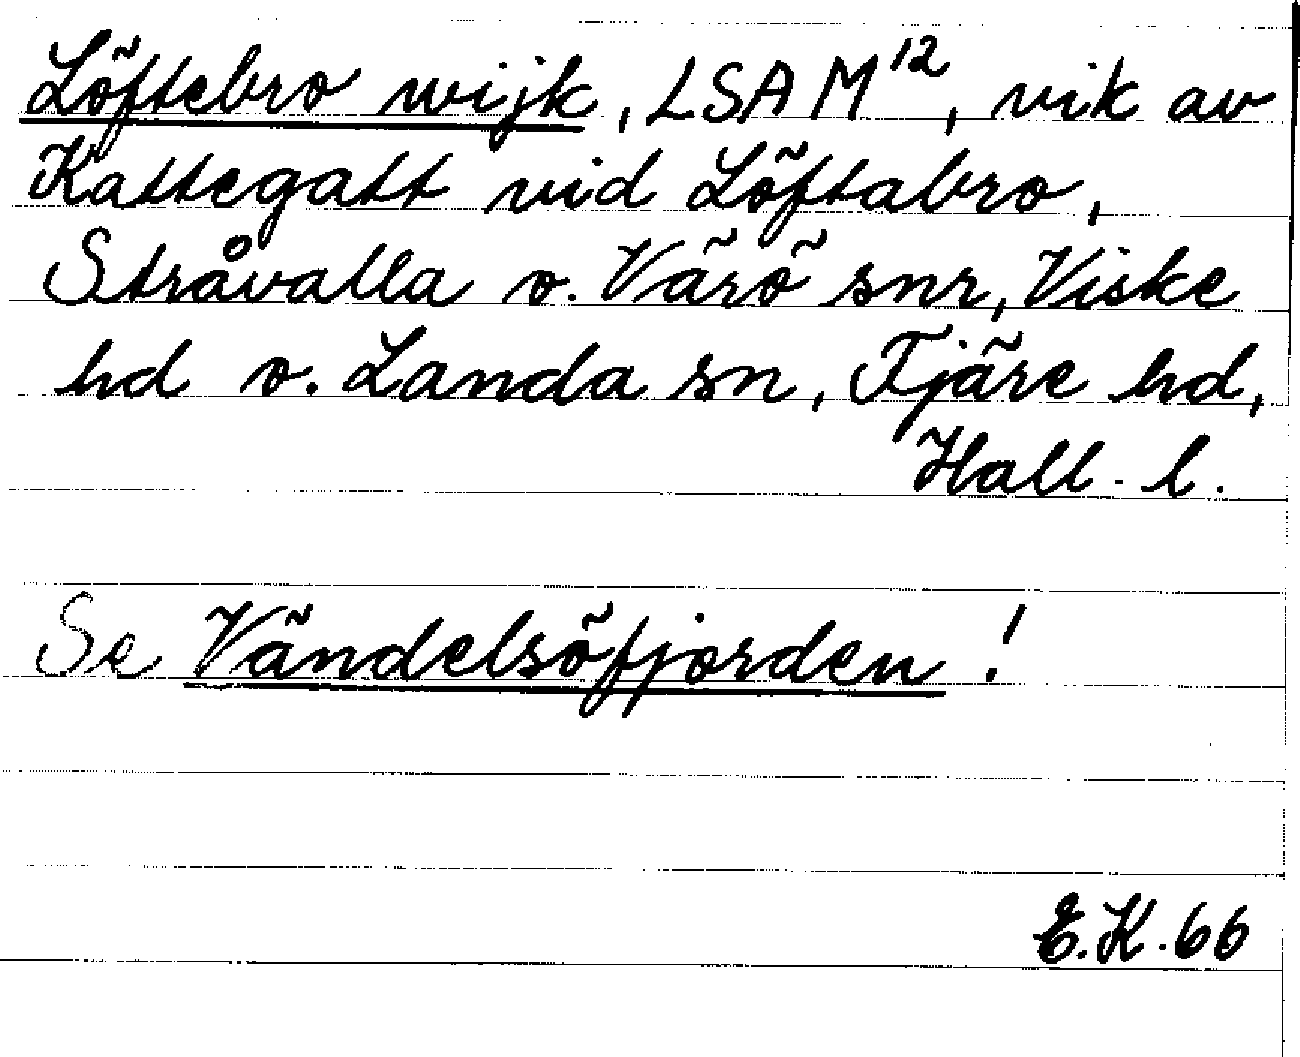 Löftebro wijk, LSA M¹², vik av
Kattegatt vid Löftabro,
Stråvalla o. Värö snr, Viske
hd o. Landa sn, Fjäre hd,
Hall. l.
Se Vändelsöfjorden!
E.K.66